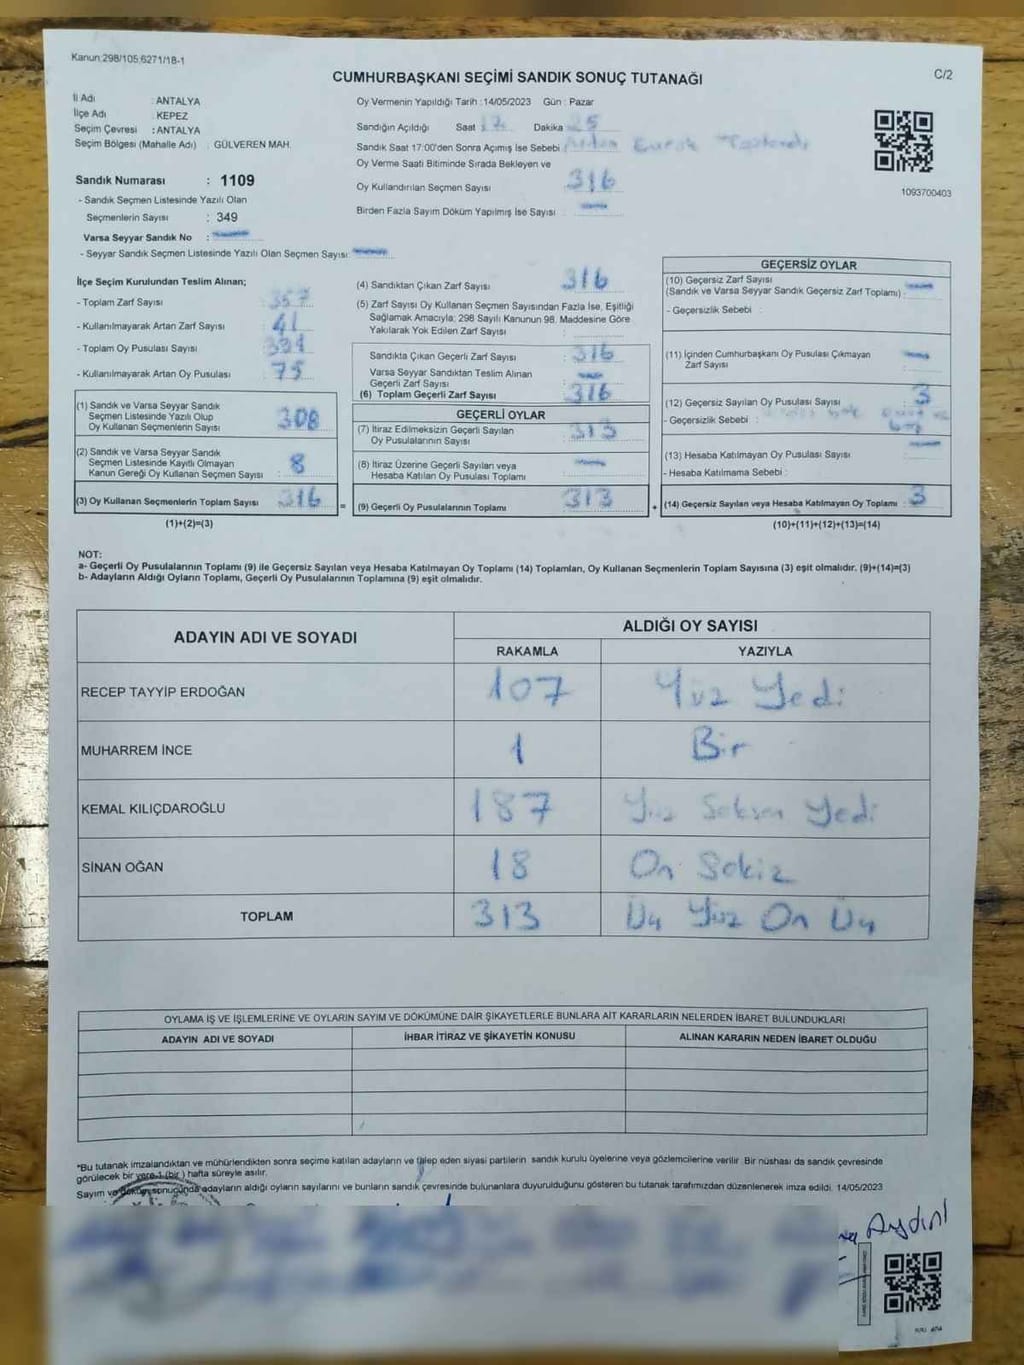 Kanun:298/105;6271/18-1
CUMHURBAŞKANI SEÇİMİ SANDIK SONUÇ TUTANAĞI
C/2
İl Adı : ANTALYA
İlçe Adı : KEPEZ
Seçim Çevresi : ANTALYA
Seçim Bölgesi (Mahalle Adı) : GÜLVEREN MAH.
Sandık Numarası : 1109
- Sandık Seçmen Listesinde Yazılı Olan
Seçmenlerin Sayısı : 349
Varsa Seyyar Sandık No :
- Seyyar Sandık Seçmen Listesinde Yazılı Olan Seçmen Sayısı:
Oy Vermenin Yapıldığı Tarih :14/05/2023 Gün : Pazar
Sandığın Açıldığı Saat : 17 Dakika : 25
Sandık Saat 17:00'den Sonra Açımış İse Sebebi :
Oy Verme Saati Bitiminde Sırada Bekleyen ve
Oy Kullandırılan Seçmen Sayısı : 316
Birden Fazla Sayım Döküm Yapılmış İse Sayısı :
1093700403
İlçe Seçim Kurulundan Teslim Alınan;
- Toplam Zarf Sayısı : 357
- Kullanılmayarak Artan Zarf Sayısı : 41
- Toplam Oy Pusulası Sayısı : 391
- Kullanılmayarak Artan Oy Pusulası : 75
(1) Sandık ve Varsa Seyyar Sandık
Seçmen Listesinde Yazılı Olup
Oy Kullanan Seçmenlerin Sayısı : 308
(2) Sandık ve Varsa Seyyar Sandık
Seçmen Listesinde Kayıtlı Olmayan
Kanun Gereği Oy Kullanan Seçmen Sayısı : 8
(3) Oy Kullanan Seçmenlerin Toplam Sayısı : 316
(1)+(2)=(3)
(4) Sandıktan Çıkan Zarf Sayısı : 316
(5) Zarf Sayısı Oy Kullanan Seçmen Sayısından Fazla İse, Eşitliği
Sağlamak Amacıyla; 298 Sayılı Kanunun 98. Maddesine Göre
Yakılarak Yok Edilen Zarf Sayısı :
Sandıkta Çıkan Geçerli Zarf Sayısı : 316
Varsa Seyyar Sandıktan Teslim Alınan
Geçerli Zarf Sayısı :
(6) Toplam Geçerli Zarf Sayısı : 316
GEÇERLİ OYLAR
(7) İtiraz Edilmeksizin Geçerli Sayılan
Oy Pusulalarının Sayısı : 313
(8) İtiraz Üzerine Geçerli Sayılan veya
Hesaba Katılan Oy Pusulası Toplamı :
= (9) Geçerli Oy Pusulalarının Toplamı : 313
GEÇERSİZ OYLAR
(10) Geçersiz Zarf Sayısı
(Sandık ve Varsa Seyyar Sandık Geçersiz Zarf Toplamı) :
- Geçersizlik Sebebi :
(11) İçinden Cumhurbaşkanı Oy Pusulası Çıkmayan
Zarf Sayısı :
(12) Geçersiz Sayılan Oy Pusulası Sayısı : 3
- Geçersizlik Sebebi :
(13) Hesaba Katılmayan Oy Pusulası Sayısı :
- Hesaba Katılmama Sebebi :
+ (14) Geçersiz Sayılan veya Hesaba Katılmayan Oy Toplamı : 3
(10)+(11)+(12)+(13)=(14)
NOT:
a- Geçerli Oy Pusulalarının Toplamı (9) ile Geçersiz Sayılan veya Hesaba Katılmayan Oy Toplamı (14) Toplamları, Oy Kullanan Seçmenlerin Toplam Sayısına (3) eşit olmalıdır. (9)+(14)=(3)
b- Adayların Aldığı Oyların Toplamı, Geçerli Oy Pusulalarının Toplamına (9) eşit olmalıdır.
ADAYIN ADI VE SOYADI
ALDIĞI OY SAYISI
RAKAMLA YAZIYLA
RECEP TAYYİP ERDOĞAN 107 Yüz Yedi
MUHARREM İNCE 1 Bir
KEMAL KILIÇDAROĞLU 187 Yüz Seksen Yedi
SİNAN OĞAN 18 On Sekiz
TOPLAM 313 Üç Yüz On Üç
OYLAMA İŞ VE İŞLEMLERİNE VE OYLARIN SAYIM VE DÖKÜMÜNE DAİR ŞİKAYETLERLE BUNLARA AİT KARARLARIN NELERDEN İBARET BULUNDUKLARI
ADAYIN ADI VE SOYADI İHBAR İTİRAZ VE ŞİKAYETİN KONUSU ALINAN KARARIN NEDEN İBARET OLDUĞU
*Bu tutanak imzalandıktan ve mühürlendikten sonra seçime katılan adayların ve talep eden siyasi partilerin sandık kurulu üyelerine veya gözlemcilerine verilir. Bir nüshası da sandık çevresinde
görülecek bir yere 1 (bir) hafta süreyle asılır.
Sayım ve döküm sonuçunda adayların aldığı oyların sayılarını ve bunların sandık çevresinde bulunanlara duyurulduğunu gösteren bu tutanak tarafımızdan düzenlenerek imza edildi. 14/05/2023
Aydın